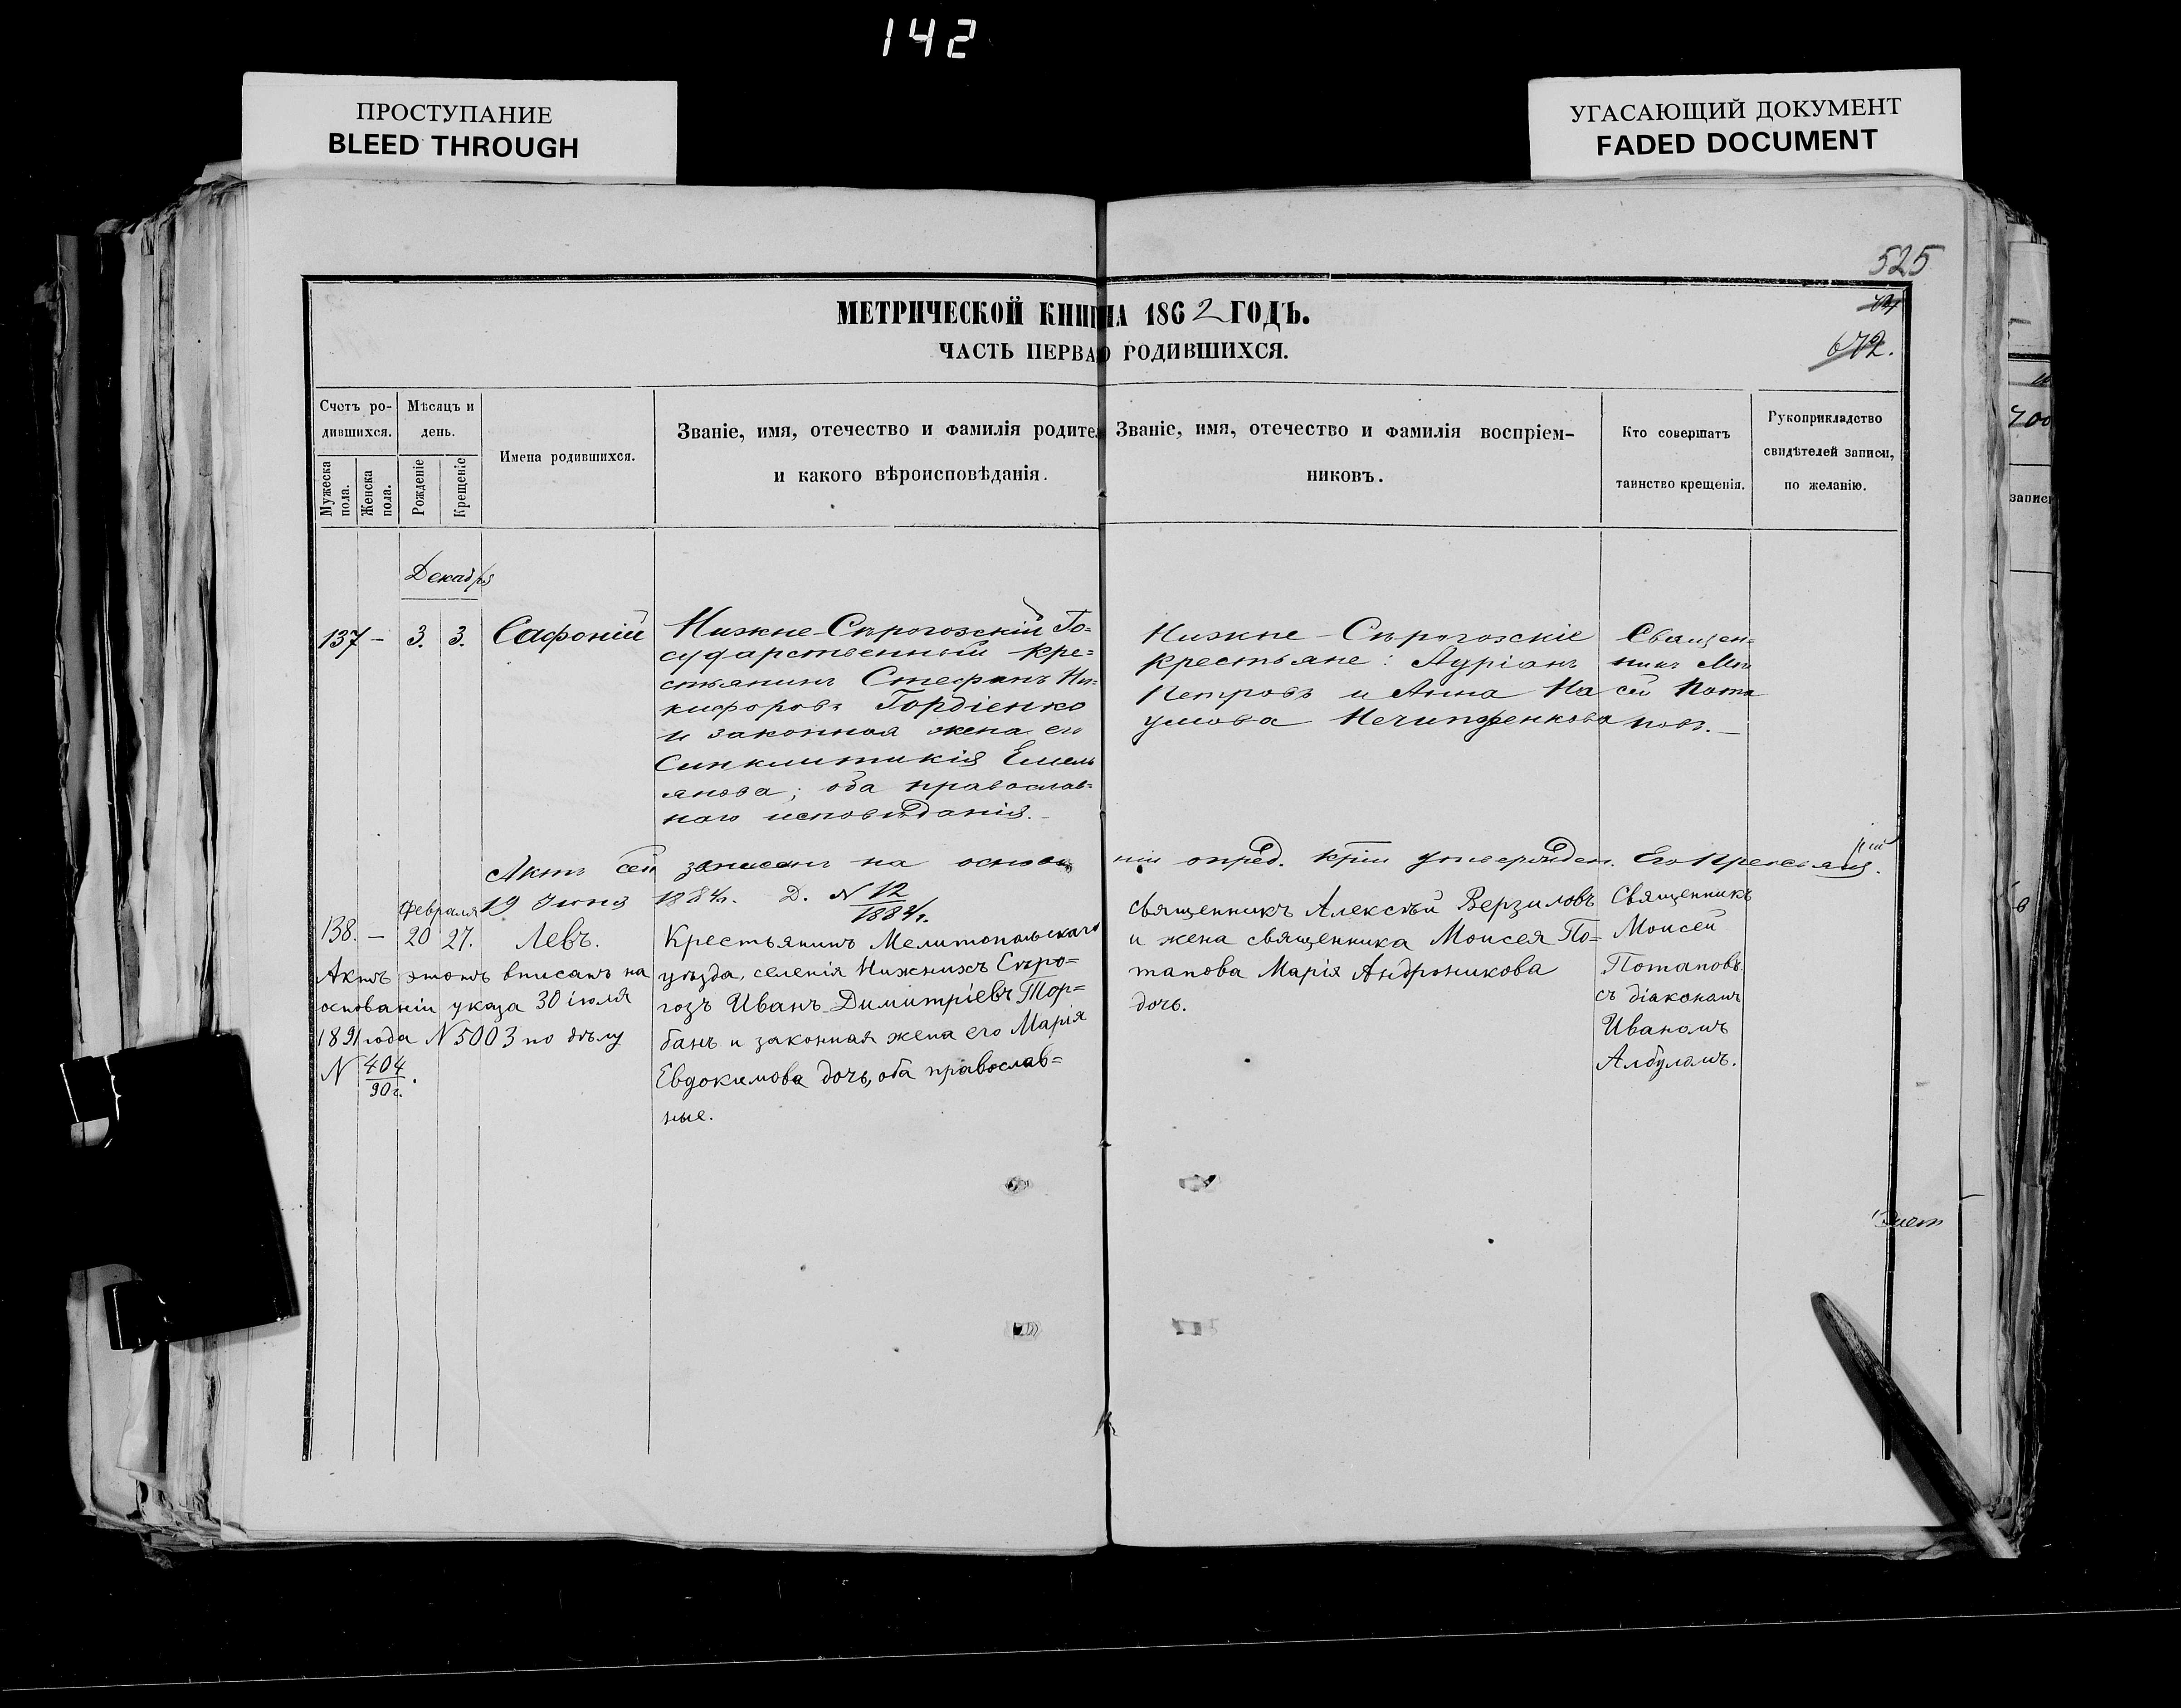 142
ПРОСТУПАНИЕ
BLEED THROUGH
УГАСАЮЩИЙ ДОКУМЕНТ
FADED DOCUMENT
525
672.
МЕТРИЧЕСКОЙ КНИГ НА 1862 ГОДЪ.
ЧАСТЬ ПЕРВА О РОДИВШИХСЯ.
Счетъ ро-
дившихся.
Мужеска
пола.
Женска
пола.
Мѣсяцъ и
день.
Рожденіе
Крещеніе
Имена родившихся.
Званіе, имя, отечество и фамилія родител
и какого вѣроисповѣданія.
Званіе, имя, отечество и фамилія воспріем-
никовъ.
Кто совершатъ
таинство крещенія.
Рукоприкладство
свидѣтелей записи,
по желанію.
Декабря
137 – 3. 3. Сафоній
Нижне-Сѣрогозскій Го=
сударственный кре=
стьянинъ Стефанъ Ни=
кифоровъ Гордіенко
и законная жена его
Синклитикія Емель
янова; оба православ=
наго исповѣданія.
Нижне-Сѣрогозскіе
крестьяне: Адріанъ
Петровъ и Анна На
умова Нечипоренкова
Священ=
никъ Мои
сей Пота
повъ.
Актъ сей записанъ на основа ніи опред. Кріи утвержден. Его Преосвящ.
19 Іюня 1884г. Д. N 12/1884г.
Февраля
138. – 20 27. Левъ.
Актъ этотъ вписанъ на
основаніи указа 30 іюля
1891 года N 5003 по дѣлу
N 404/90г.
Крестьянинъ Мелитопольскаго
уѣзда, селенія Нижнихъ Сѣро=
гозъ Иванъ Димитріевъ Тор=
банъ и законная жена его Марія
Евдокимова дочь, оба православ=
ные.
священникъ Алексѣй Верзиловъ
и жена священника Моисея По=
тапова Марія Андроникова
дочь.
Священникъ
Моисей
Потаповъ
съ діакономъ
Иваномъ
Албуломъ.
700
записи